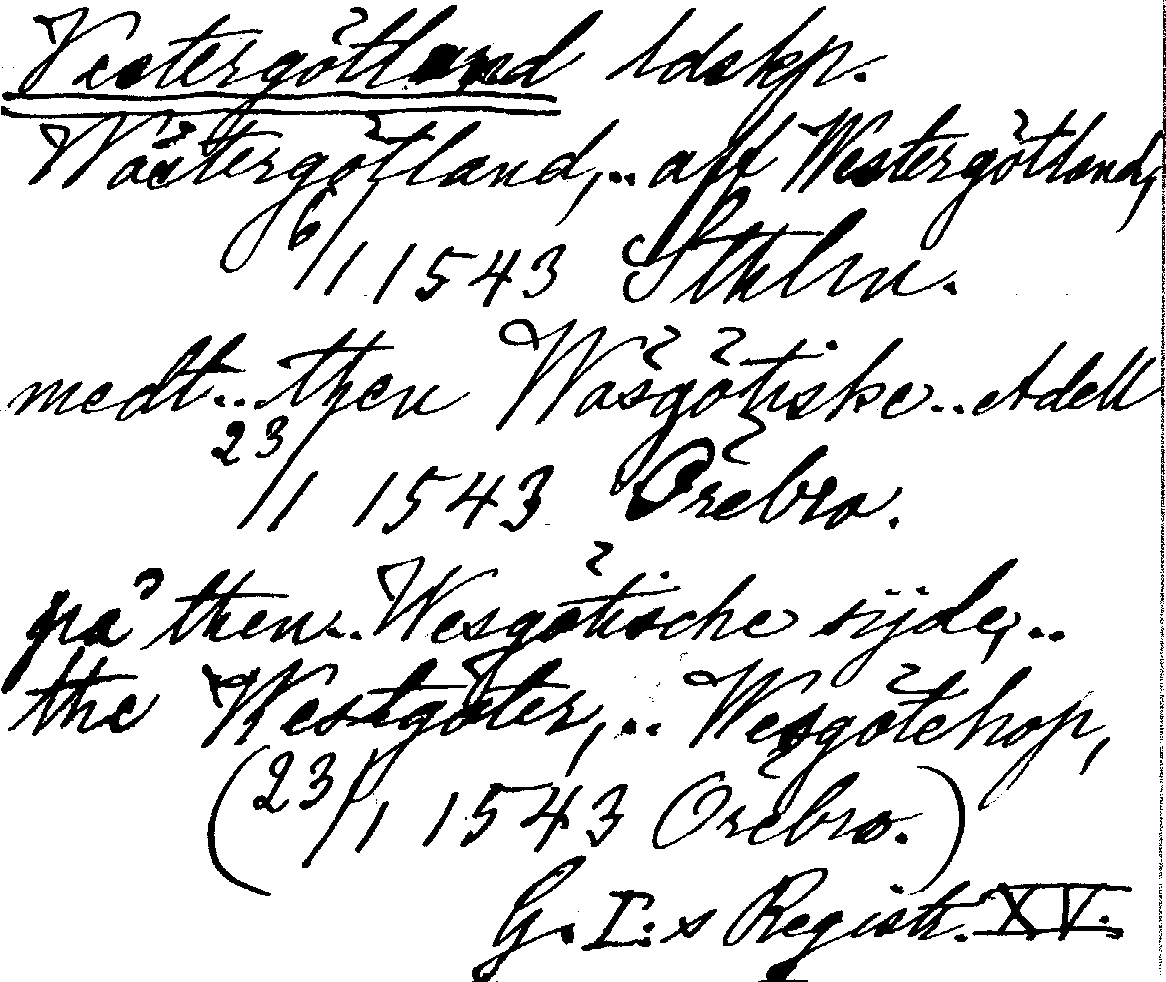 Vestergötland ldskp.
Wästergötland,.. aff Westergötland,
6/1 1543 Sthlm.
medt.. then Wäsgötiske.. Adell
23/1 1543 Örebro.
på then.. Wesgötische sijde,..
the Westgöter,.. Wesgötehop,
(23/1 1543 Örebro.)
G. I:s Registr. XV.